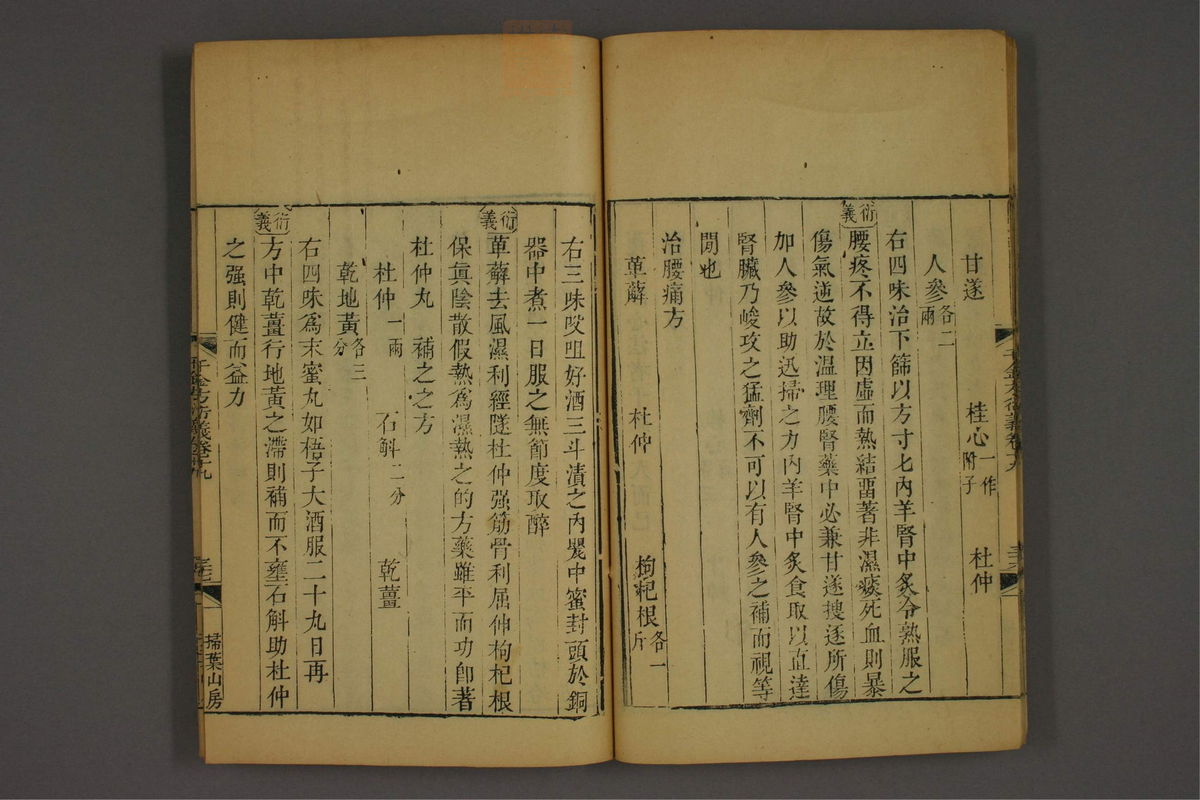 甘遂　桂心一作附子　杜仲
人參各二兩
右四味治下篩以方寸匕內羊腎中炙令熟服之
衍義
腰疼不得立因虛而熱結畱著非濕痰死血則暴
傷氣逆故於温理腰腎藥中必兼甘遂搜逐所傷
加人參以助迅掃之力內羊腎中炙食取以直達
腎臟乃峻攻之猛劑不可以有人參之補而視等
閒也
治腰痛方
萆薢　杜仲　枸杞根各一斤
右三味㕮咀好酒三斗漬之內甖中蜜封頭於銅
器中煮一日服之無節度取醉
衍義
萆薢去風濕利經隧杜仲强筋骨利屈伸枸杞根
保眞陰散假熱爲濕熱之的方藥雖平而功卽著
杜仲丸　補之之方
杜仲一兩　石斛二分　乾薑
乾地黃各三分
右四味爲末蜜丸如梧子大酒服二十丸日再
衍義
方中乾薑行地黃之滯則補而不壅石斛助杜仲
之强則健而益力
千金方衍義卷十九
掃葉山房